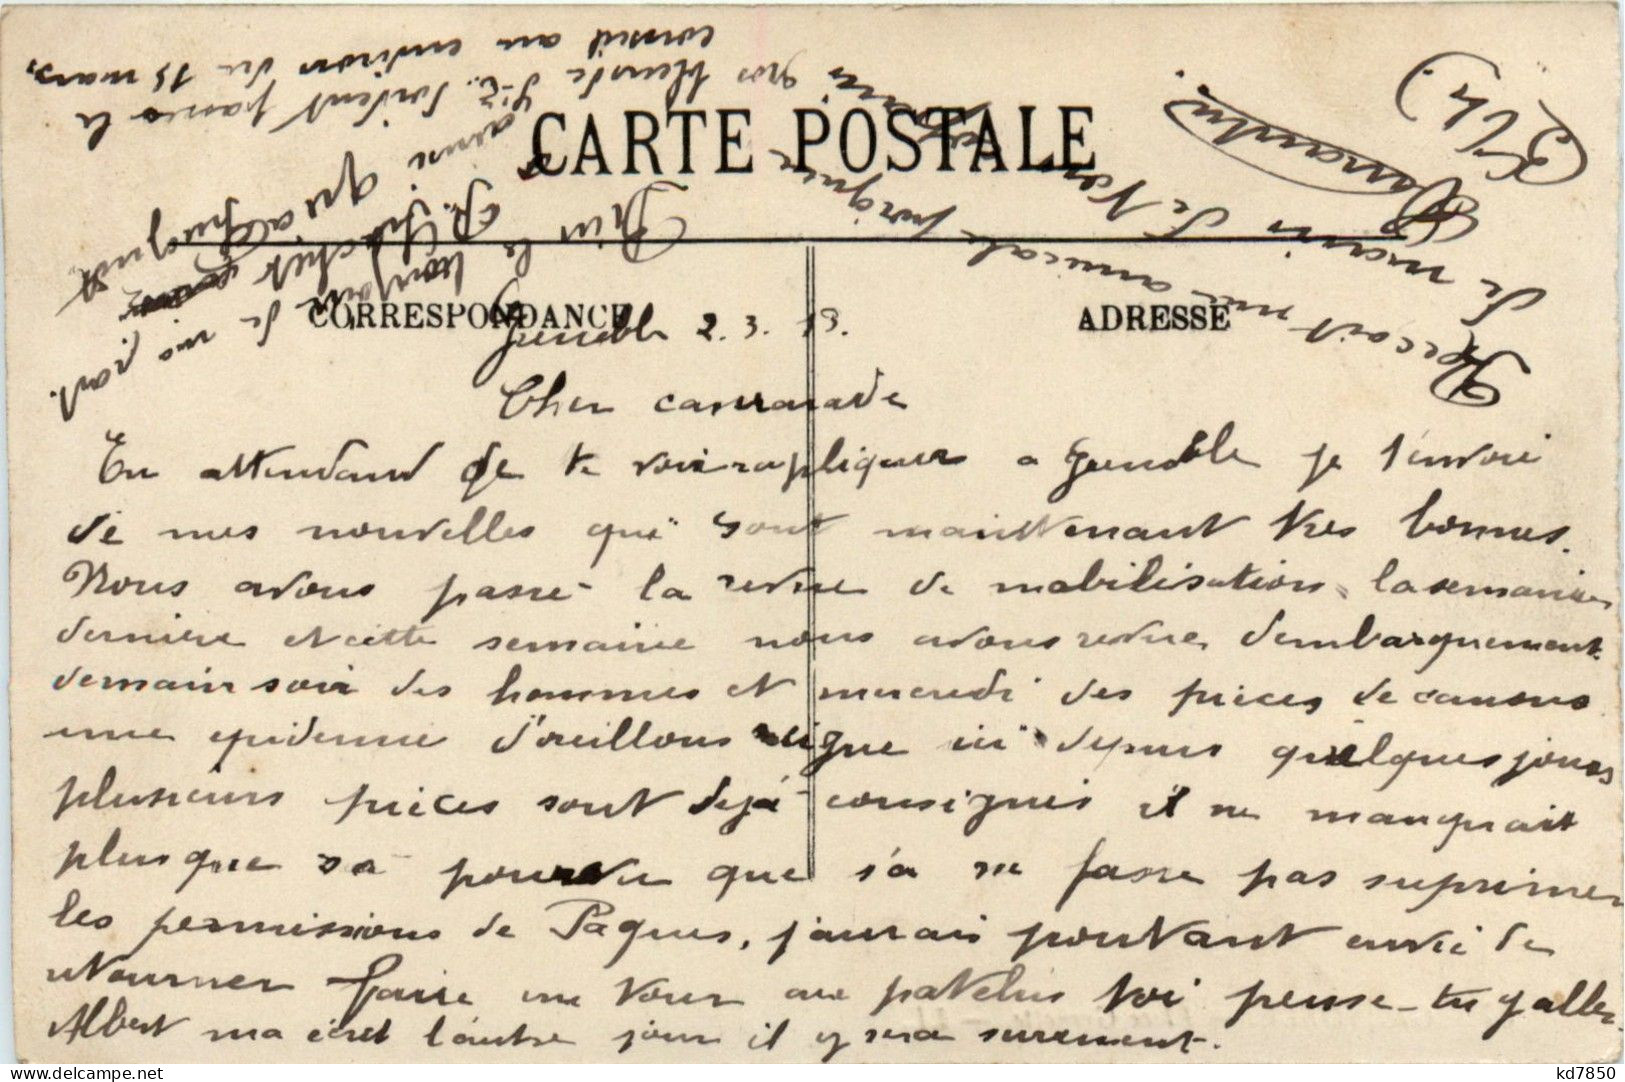 CARTE POSTALE
CORRESPONDANCE
ADRESSE
Grenoble 2. 3. 13.
Cher camarade
En attendant de te voir rapliquer a Grenoble je t'envoi
de mes nouvelles qui sont maintenant tres bonnes.
Nous avons passé la revue de mobilisation la semaine
derniere et cette semaine nous avons revue d'embarquement
demain soir des hommes et mercredi des pieces de canons
une epidemie d'oreillons reigne ici depuis quelques jours
plusieurs pieces sont dejà consignés il ne manquait
plus que sa pourvu que s'a ne fasse pas suprimer
les permissions de Paques, j'aurais pourtant envie de
retourner faire un tour au patelin toi pense-tu y aller
Albert ma écrit l'autre jour il y sera surement.
Reçoit mes amicale
Je
(Th.)
Dis le bonsoir
de ma part.
gros blonde
conseil au environ du 15 mars,